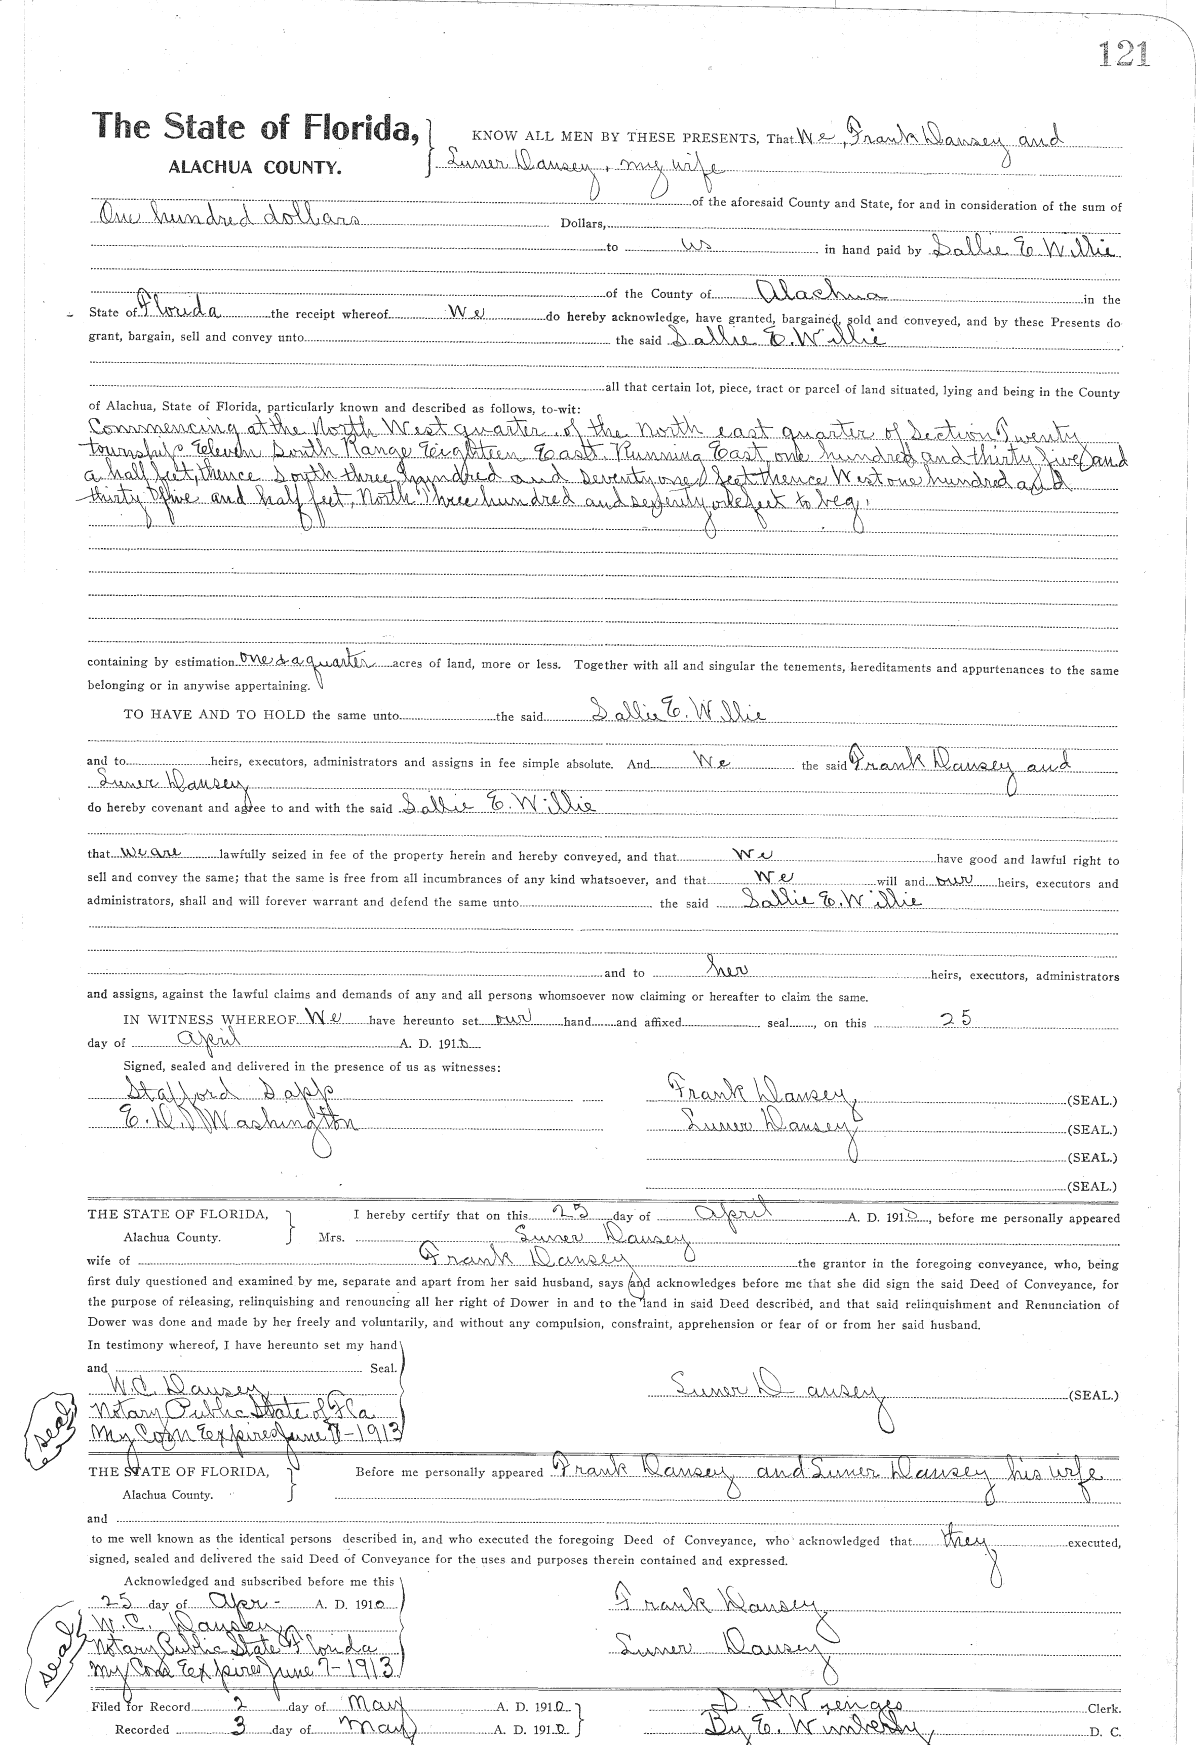 121
The State of Florida, KNOW ALL MEN BY THESE PRESENTS, That We, Frank Dansey and
ALACHUA COUNTY. Luner Dansey, my wife
of the aforesaid County and State, for and in consideration of the sum of
One hundred dollars Dollars,
to us in hand paid by Sallie E Willie
of the County of Alachua in the
State of Florida the receipt whereof We do hereby acknowledge, have granted, bargained, sold and conveyed, and by these Presents do
grant, bargain, sell and convey unto the said Sallie E. Willie
all that certain lot, piece, tract or parcel of land situated, lying and being in the County
of Alachua, State of Florida, particularly known and described as follows, to-wit:
Commencing at the North West quarter of the North east quarter of Section Twenty
township Eleven South Range Eighteen East. Running East one hundred and thirty five and
a half feet, thence South three hundred and seventy one feet thence West one hundred and
thirty five and half feet, North Three hundred and seventy one feet to beg.
containing by estimation one & a quarter acres of land, more or less. Together with all and singular the tenements, hereditaments and appurtenances to the same
belonging or in anywise appertaining.
TO HAVE AND TO HOLD the same unto the said Sallie E. Willie
and to heirs, executors, administrators and assigns in fee simple absolute. And We the said Frank Dansey and
Luner Dansey
do hereby covenant and agree to and with the said Sallie E. Willie
that we are lawfully seized in fee of the property herein and hereby conveyed, and that We have good and lawful right to
sell and convey the same; that the same is free from all incumbrances of any kind whatsoever, and that We will and our heirs, executors and
administrators, shall and will forever warrant and defend the same unto the said Sallie E. Willie
and to her heirs, executors, administrators
and assigns, against the lawful claims and demands of any and all persons whomsoever now claiming or hereafter to claim the same.
IN WITNESS WHEREOF We have hereunto set our hand and affixed seal, on this 25
day of April A. D. 1910
Signed, sealed and delivered in the presence of us as witnesses:
Stafford Sapp Frank Dansey (SEAL.)
E. D. Washington Luner Dansey (SEAL.)
(SEAL.)
(SEAL.)
THE STATE OF FLORIDA, I hereby certify that on this 25 day of April A. D. 1910, before me personally appeared
Alachua County. Mrs. Luner Dansey
wife of Frank Dansey the grantor in the foregoing conveyance, who, being
first duly questioned and examined by me, separate and apart from her said husband, says and acknowledges before me that she did sign the said Deed of Conveyance, for
the purpose of releasing, relinquishing and renouncing all her right of Dower in and to the land in said Deed described, and that said relinquishment and Renunciation of
Dower was done and made by her freely and voluntarily, and without any compulsion, constraint, apprehension or fear of or from her said husband.
In testimony whereof, I have hereunto set my hand
and Seal.
W.C. Dansey Luner Dansey (SEAL.)
Notary Public State of Fla
seal My Com Expires June 7-1913
THE STATE OF FLORIDA, Before me personally appeared Frank Dansey and Luner Dansey his wife
Alachua County.
and
to me well known as the identical persons described in, and who executed the foregoing Deed of Conveyance, who acknowledged that they executed,
signed, sealed and delivered the said Deed of Conveyance for the uses and purposes therein contained and expressed.
Acknowledged and subscribed before me this
25 day of Apr- A. D. 1910 Frank Dansey
W.C. Dansey
seal Notary Public State Florida Luner Dansey
My Com Expires June 7-1913
Filed for Record 2 day of May A. D. 1910 S. H Wienges Clerk.
Recorded 3 day of May A. D. 1910. By E. Wimberly, D. C.